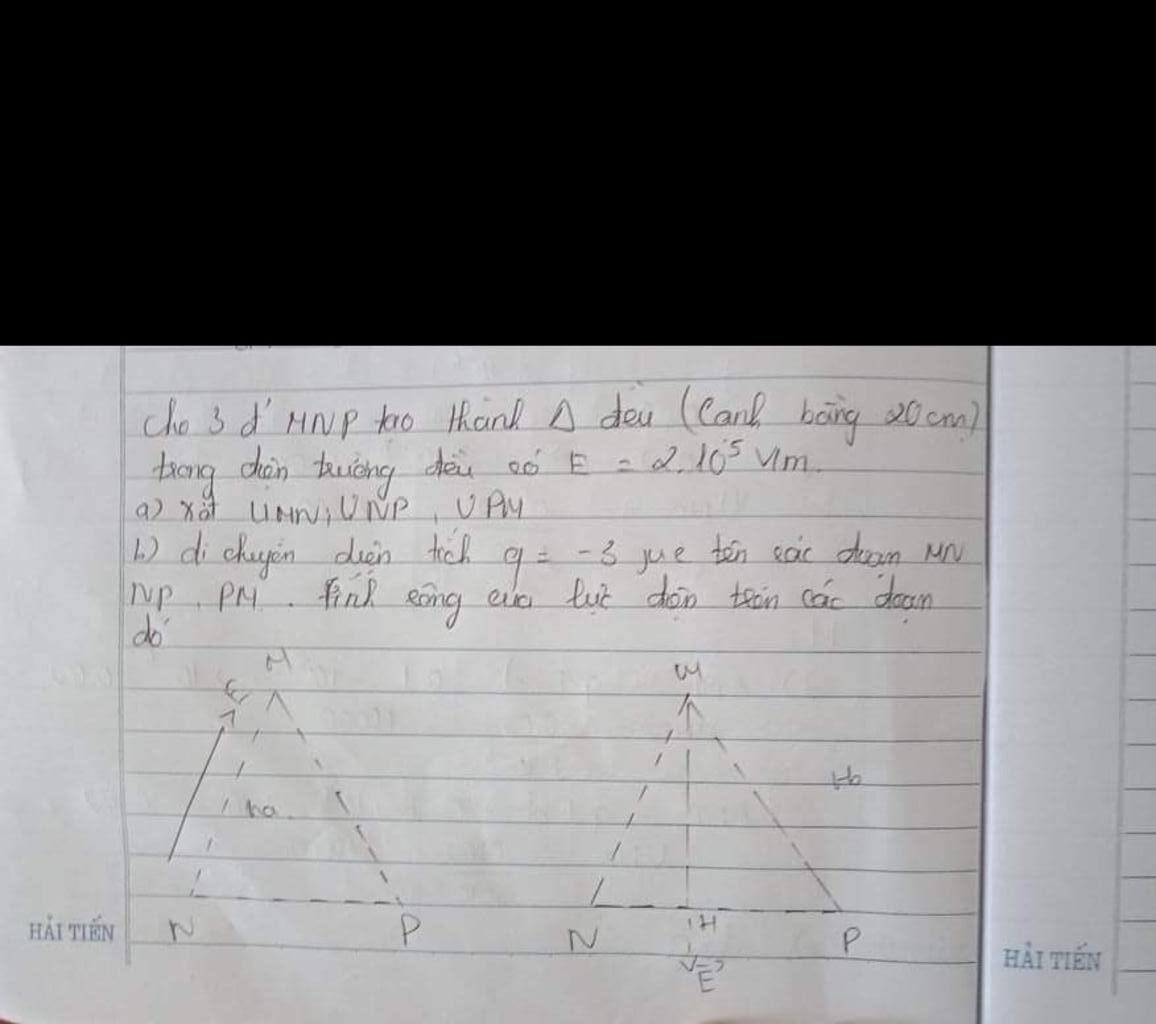 cho 3 đ' MNP tạo thành Δ đều (Cạnh bằng 20cm)
trong điện trường đều có E = 2.10⁵ V/m.
a) xét UMN; UNP, UPM
b) di chuyển điện tích q = -3 μe tên các đoạn MN
NP, PM. tính công của lực điện trên các đoạn
đó
M
M
E
Hb
ha.
N
P
N
H
P
E
HẢI TIẾN
HẢI TIẾN